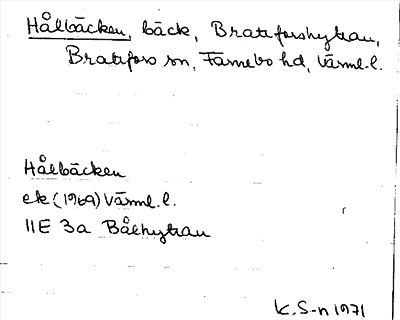 Hålbäcken, bäck, Bratsforshyttan,
Bratsfors sn, Färnebo hd, Värml. l.
Hålbäcken
ek (1969) Värml. l.
11E 3a Bålhyttan
K. S-n 1971